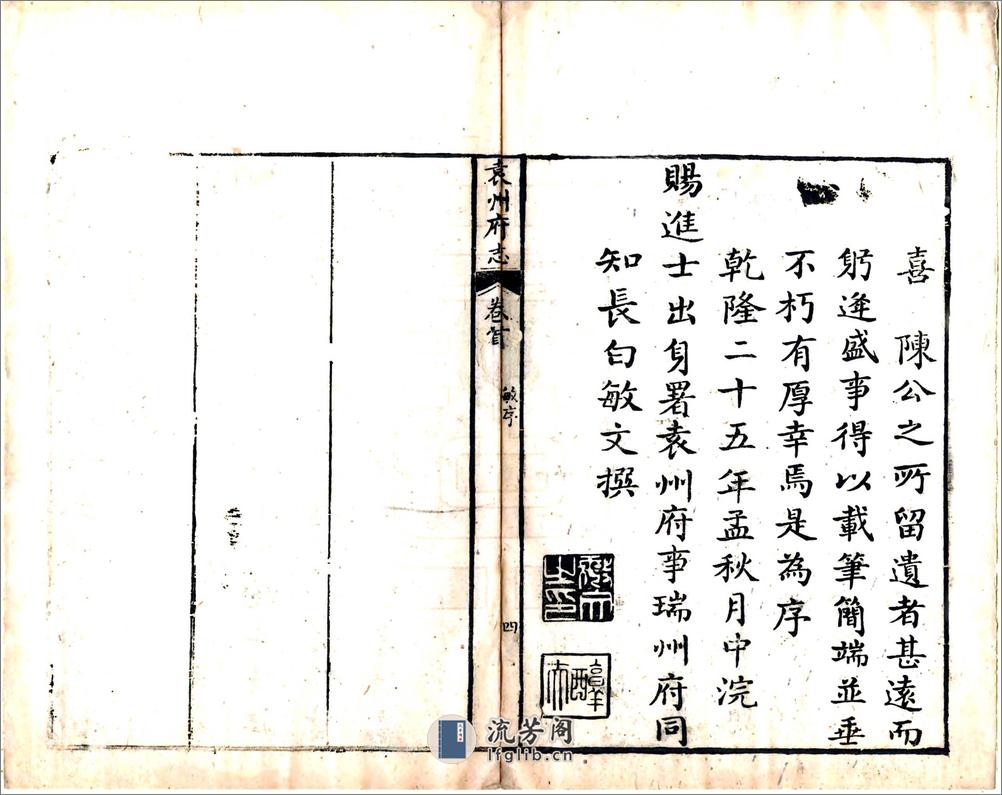 喜　陳公之所留遺者甚遠而
躬逢盛事得以載筆簡端並垂
不朽有厚幸焉是為序
乾隆二十五年孟秋月中浣
賜進士出身署袁州府事瑞州府同
知長白敏文撰
袁州府志
卷首
敏序
四
流芳阁
lfglib.cn